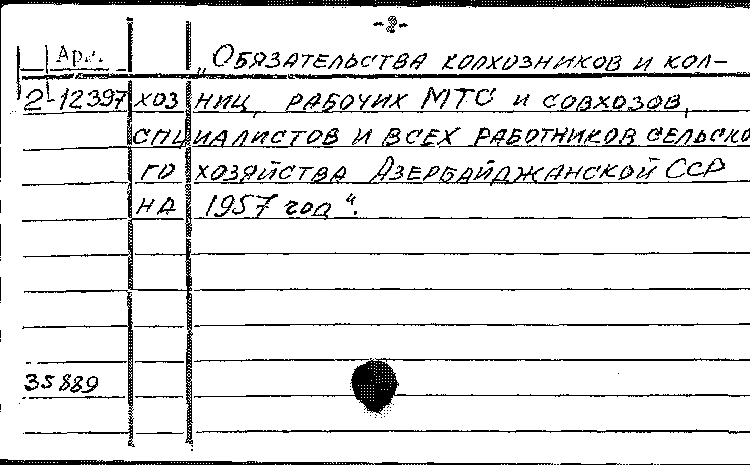 -2-
Арх.
„Обязательства колхозников и кол-
2-12397 хозниц, рабочих МТС и совхозов,
спциалистов и всех работников сельско
го хозяйства Азербайджанской ССР
на 1957 год“.
35889